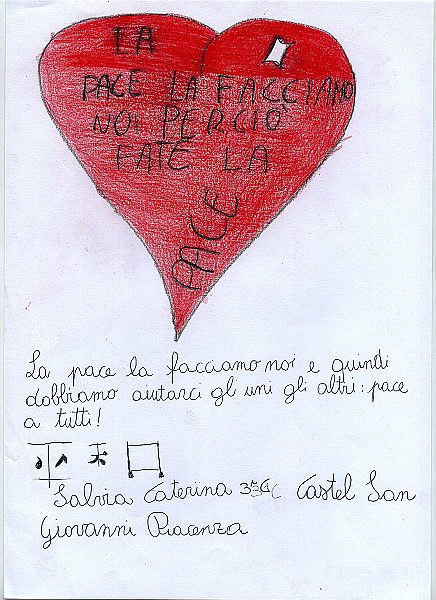 LA
PACE LA FACCIAMO
NOI PERCIÒ
FATE LA
PACE
La pace la facciamo noi e quindi
dobbiamo aiutarci gl uni gli altri: pace
a tutti!
平 禾 口
Salvia Caterina Castel San
Giovanni Piacenza